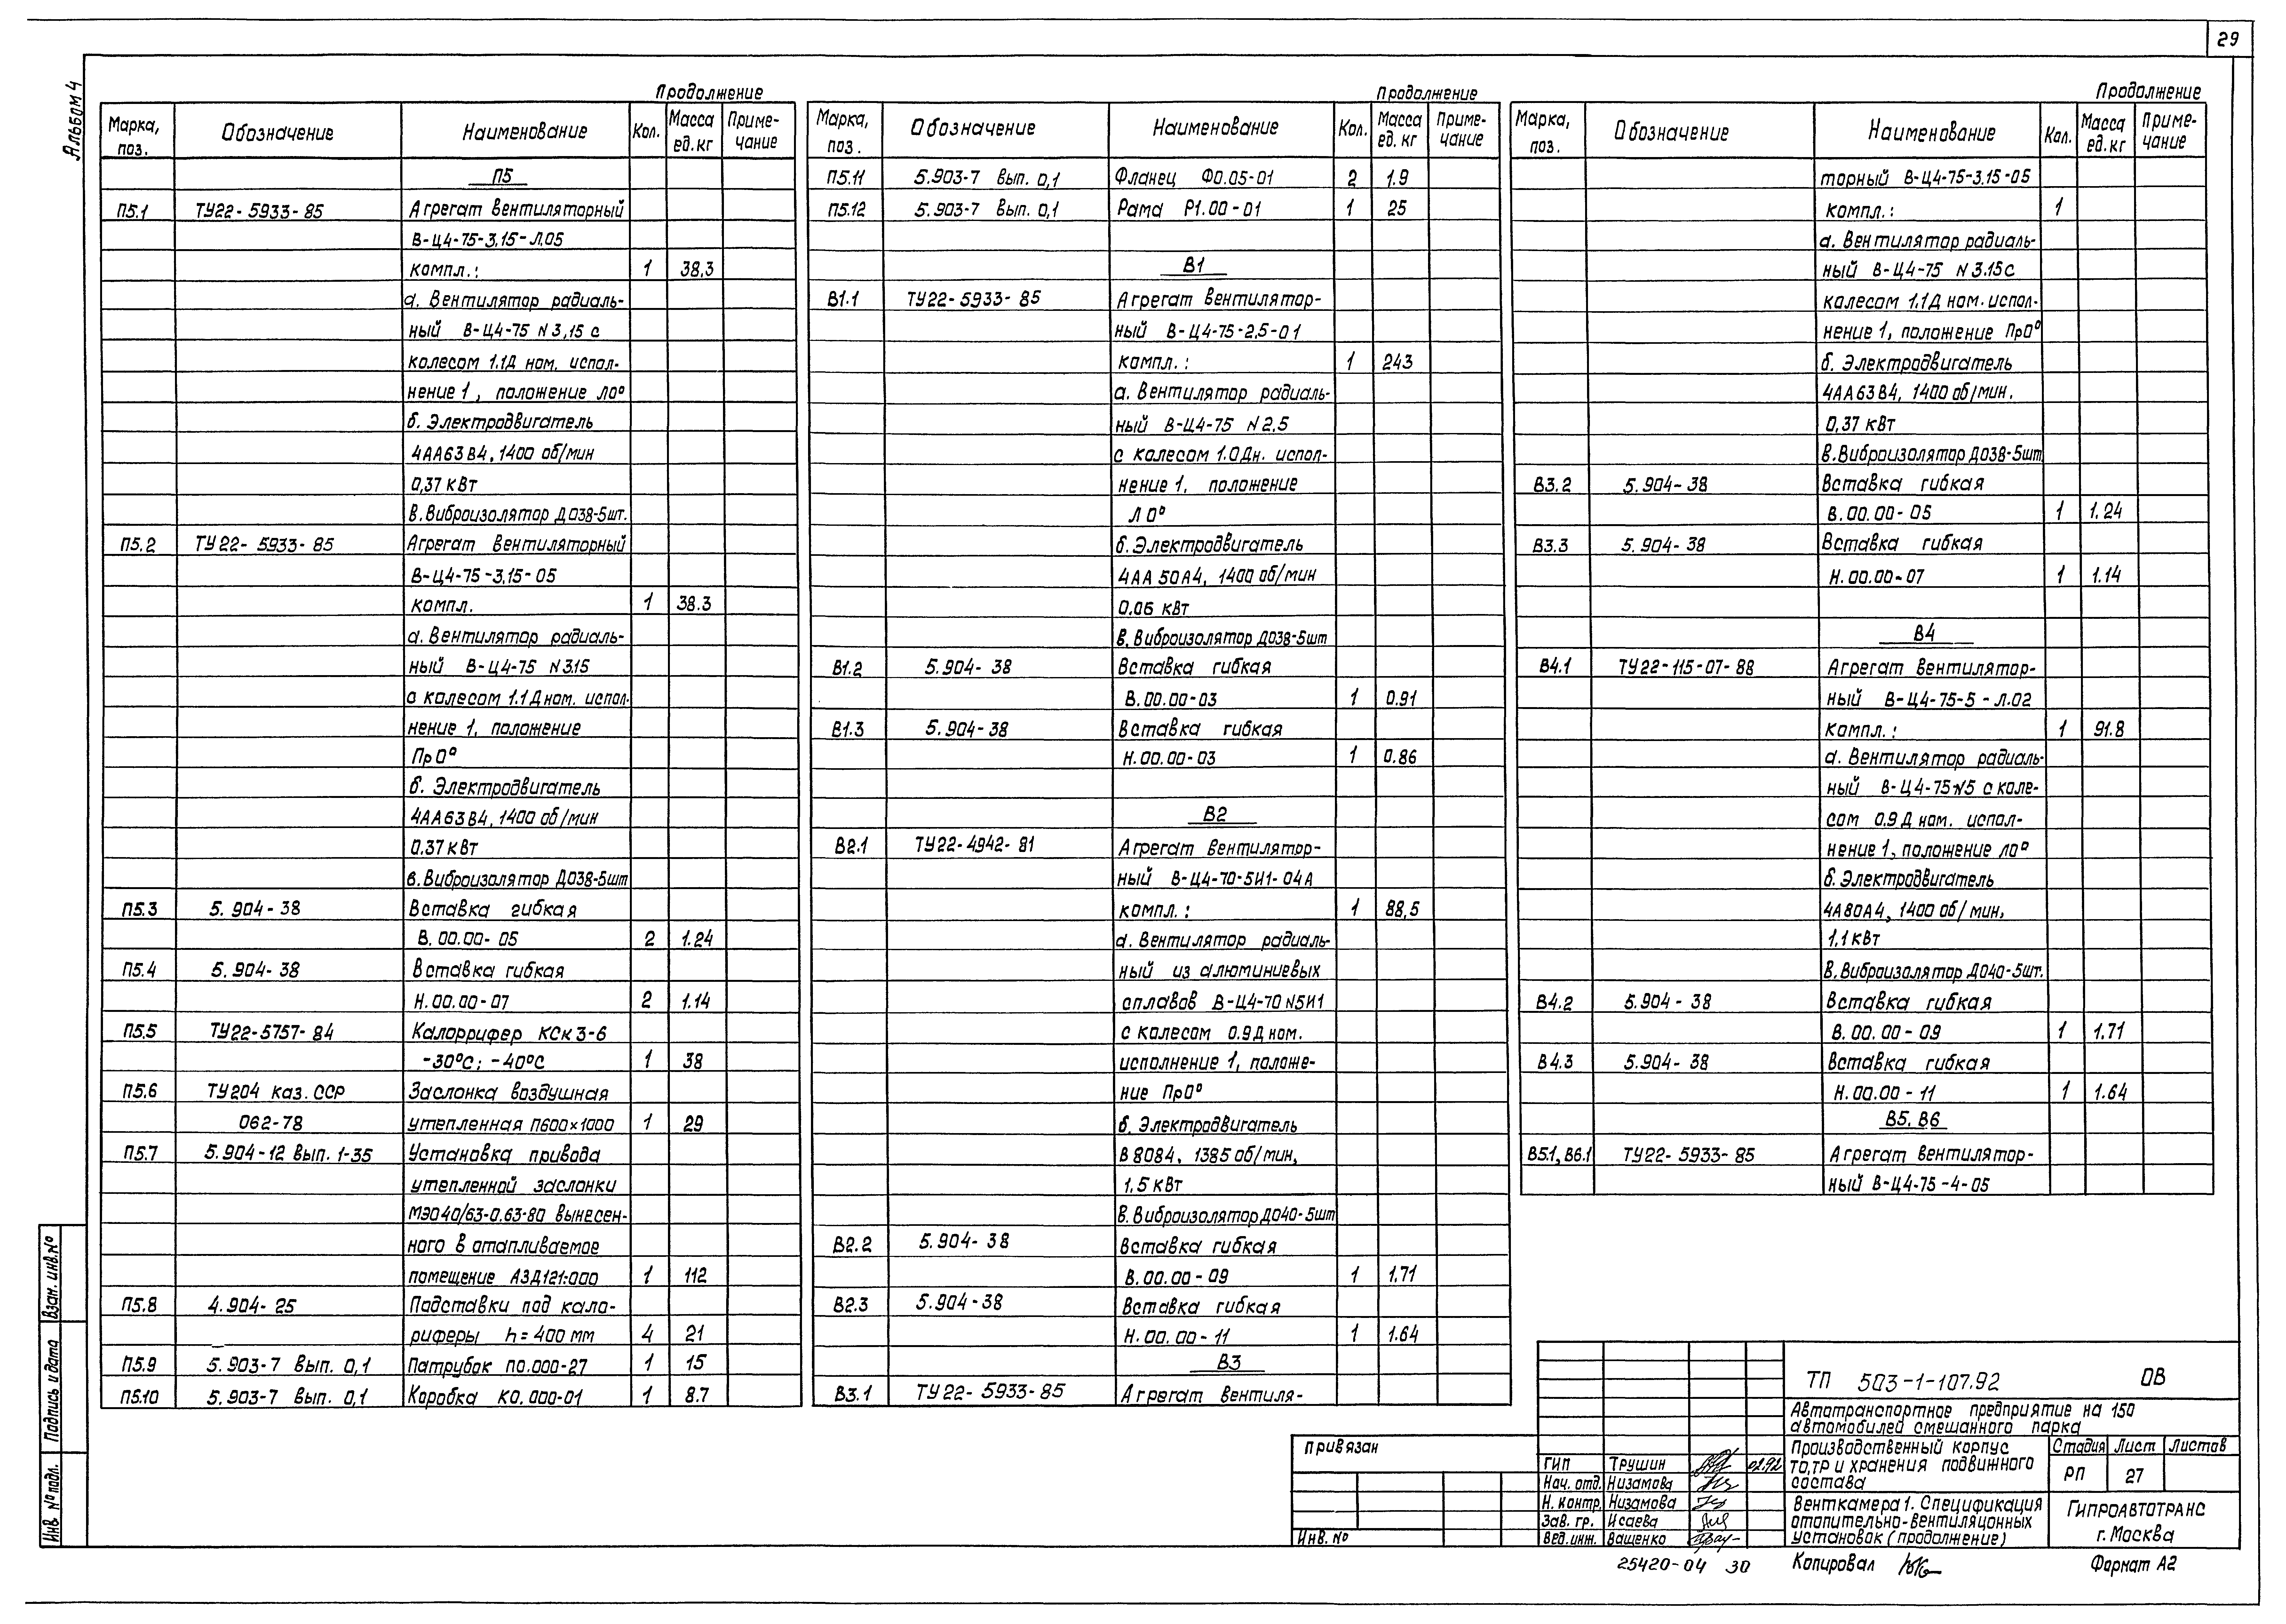 29
Альбом 4
Продолжение
Марка, поз. Обозначение Наименование Кол. Масса ед. кг Примечание
П5
П5.1 ТУ22-5933-85 Агрегат вентиляторный
В-Ц4-75-3.15-Л.05
компл.: 1 38,3
а. Вентилятор радиаль-
ный В-Ц4-75 N3,15 с
колесом 1.1Д ном. испол-
нение 1, положение Л0°
б. Электродвигатель
4АА63В4, 1400 об/мин
0,37 кВт
в. Виброизолятор Д038-5шт.
П5.2 ТУ22-5933-85 Агрегат вентиляторный
В-Ц4-75-3.15-05
компл. 1 38.3
а. Вентилятор радиаль-
ный В-Ц4-75 N3.15
с колесом 1.1Д ном. испол-
нение 1, положение
Пр0°
б. Электродвигатель
4АА63В4, 1400 об/мин
0.37 кВт
в. Виброизолятор Д038-5шт
П5.3 5.904-38 Вставка гибкая
В.00.00-05 2 1.24
П5.4 5.904-38 Вставка гибкая
Н.00.00-07 2 1.14
П5.5 ТУ22-5757-84 Калоррифер КСк3-6
-30°С; -40°С 1 38
П5.6 ТУ204 Каз.ССР Заслонка воздушная
062-78 утепленная П600×1000 1 29
П5.7 5.904-12 вып. 1-35 Установка привода
утепленной заслонки
МЭО40/63-0.63-80 вынесен-
ного в отапливаемое
помещение АЗД121.000 1 112
П5.8 4.904-25 Подставки под кало-
риферы h=400 мм 4 21
П5.9 5.903-7 вып. 0,1 Патрубок П0.000-27 1 15
П5.10 5.903-7 вып. 0,1 Коробка К0.000-01 1 8.7
Продолжение
Марка, поз. Обозначение Наименование Кол. Масса ед. кг Примечание
П5.11 5.903-7 вып. 0,1 Фланец Ф0.05-01 2 1.9
П5.12 5.903-7 вып. 0,1 Рама Р1.00-01 1 25
В1
В1.1 ТУ22-5933-85 Агрегат вентилятор-
ный В-Ц4-75-2,5-01
компл.: 1 243
а. Вентилятор радиаль-
ный В-Ц4-75 N2,5
с колесом 1.0Дн. испол-
нение 1, положение
Л0°
б. Электродвигатель
4АА50А4, 1400 об/мин
0.06 кВт
в. Виброизолятор Д038-5шт
В1.2 5.904-38 Вставка гибкая
В.00.00-03 1 0.91
В1.3 5.904-38 Вставка гибкая
Н.00.00-03 1 0.86
В2
В2.1 ТУ22-4942-81 Агрегат вентилятор-
ный В-Ц4-70-5И1-04А
компл.: 1 88,5
а. Вентилятор радиаль-
ный из алюминиевых
сплавов В-Ц4-70 N5И1
с колесом 0.9Д ном.
исполнение 1, положе-
ние Пр0°
б. Электродвигатель
В8084, 1385 об/мин,
1,5 кВт
в. Виброизолятор Д040-5шт
В2.2 5.904-38 Вставка гибкая
В.00.00-09 1 1.71
В2.3 5.904-38 Вставка гибкая
Н.00.00-11 1 1.64
В3
В3.1 ТУ22-5933-85 Агрегат вентиля-
Продолжение
Марка, поз. Обозначение Наименование Кол. Масса ед. кг Примечание
торный В-Ц4-75-3.15-05
компл.: 1
а. Вентилятор радиаль-
ный В-Ц4-75 N3.15 с
колесом 1.1Д ном. испол-
нение 1, положение Пр0°
б. Электродвигатель
4АА63В4, 1400 об/мин.
0,37 кВт
в. Виброизолятор Д038-5шт
В3.2 5.904-38 Вставка гибкая
В.00.00-05 1 1.24
В3.3 5.904-38 Вставка гибкая
Н.00.00-07 1 1.14
В4
В4.1 ТУ22-115-07-88 Агрегат вентилятор-
ный В-Ц4-75-5-Л.02
компл.: 1 91.8
а. Вентилятор радиаль-
ный В-Ц4-75 N5 с коле-
сом 0.9Д ном. испол-
нение 1, положение Л0°
б. Электродвигатель
4А80А4, 1400 об/мин,
1,1 кВт
в. Виброизолятор Д040-5шт.
В4.2 5.904-38 Вставка гибкая
В.00.00-09 1 1.71
В4.3 5.904-38 Вставка гибкая
Н.00.00-11 1 1.64
В5. В6
В5.1, В6.1 ТУ22-5933-85 Агрегат вентилятор-
ный В-Ц4-75-4-05
Взам. инв.№
Подпись и дата
Инв. № подл.
Привязан
Инв. №
ТП 503-1-107.92 ОВ
Автотранспортное предприятие на 150
автомобилей смешанного парка
Производственный корпус
ТО, ТР и хранения подвижного
состава
Стадия Лист Листов
РП 27
Венткамера 1. Спецификация
отопительно-вентиляционных
установок (продолжение)
ГИПРОАВТОТРАНС
г. Москва
ГИП Трушин 02.92
Нач. отд. Низамова
Н. контр. Низамова
Зав. гр. Исаева
Вед. инж. Ващенко
25420-04 30
Копировал
Формат А2